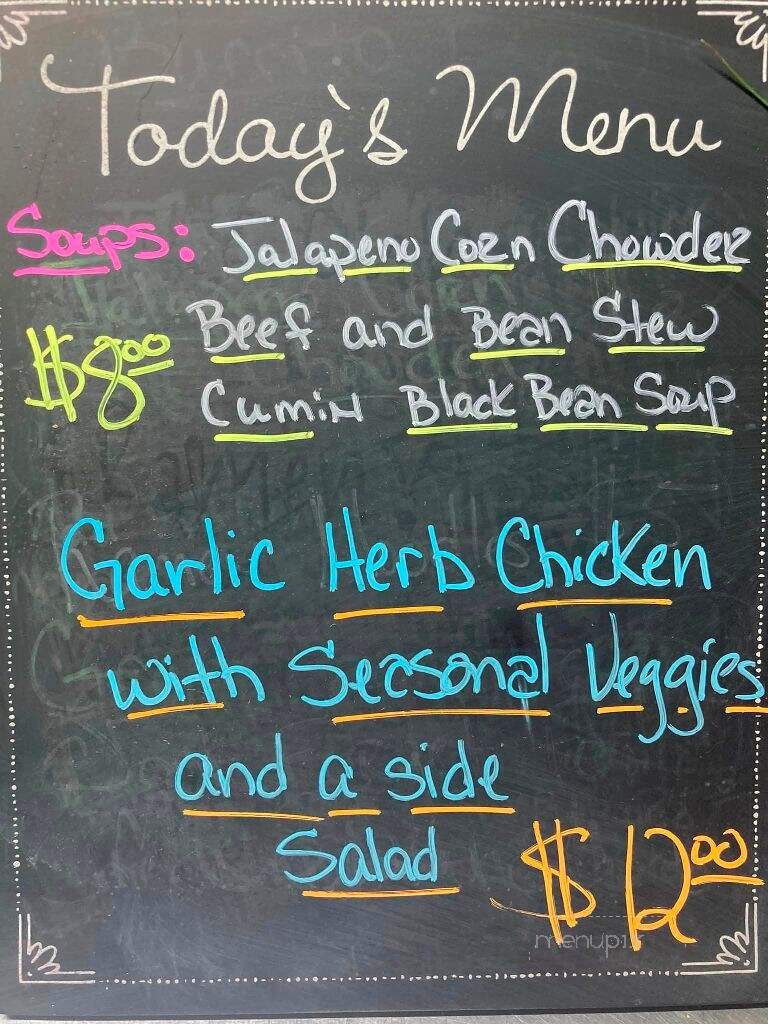 Today's Menu
Soups: Jalapeno Corn Chowder
$8.00 Beef and Bean Stew
Cumin Black Bean Soup
Garlic Herb Chicken
with Seasonal Veggies
and a side
Salad
$12.00